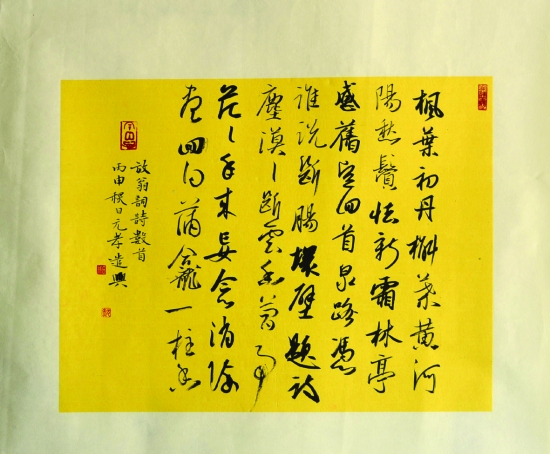 楓葉初丹槲葉黃河
陽愁鬢怯新霜林亭
感舊空回首泉路憑
誰說斷腸壞壁題詩
塵漠〻斷雲幽夢事
茫〻年來妄念消除
盡回向蒲龕一柱香
放翁詞詩數首
丙申秋日元孝遣興